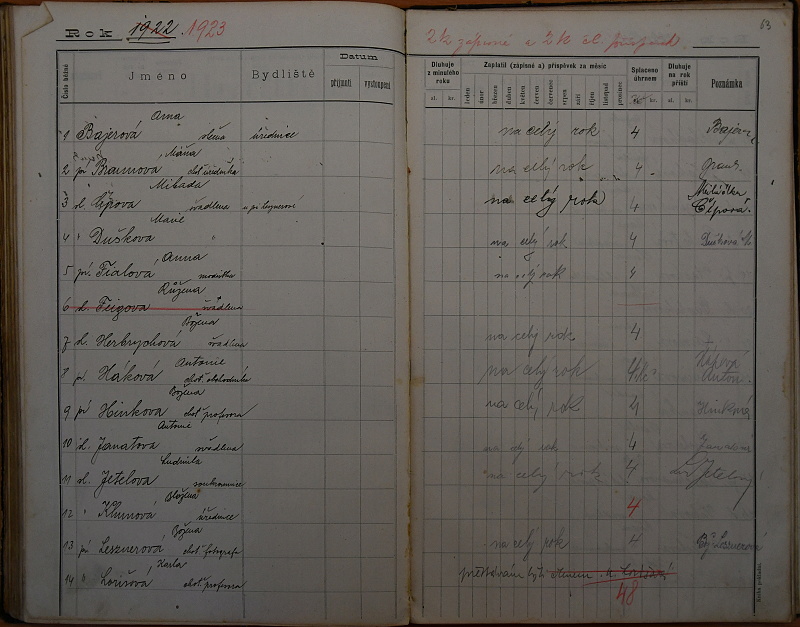 63
Rok 1922 1923
2 k zápisné a 2 k čl. příspěvek.
Číslo běžné
Jméno
Bydliště
Datum
přijmutí
vystoupení
Dluhuje z minulého roku
zl. kr.
Zaplatil (zápisné a) příspěvek za měsíc
leden únor březen duben květen červen červenec srpen září říjen listopad prosinec
Splaceno úhrnem
kr.
Dluhuje na rok příští
zl. kr.
Poznámka
Anna
1 Bajerová slečna úřednice na celý rok 4
Máňa
2 pí Braunova choť úředníka na celý rok 4
Milada
3 sl. Čípova švadlena na celý rok 4 Čípová.
Marie
4 " Duškova " na celý rok 4 Dušková M.
Anna
5 pí. Fialová modistka na celý rok 4
Růžena
6 sl. Feigova švadlena
Božena
7 sl. Herbrychová švadlena na celý rok 4
Antonie
8 pí. Háková choť obchodníka na celý rok 4 Kč Háková Anton.
Božena
9 pí Hinkova choť profesora na celý rok 4 Hinková
Antonie
10 sl. Janatova švadlena na celý rok 4
Ludmila
11 sl. Jetelova soukromnice na celý rok 4 Jetelová
Božena
12 " Klumová úřednice 4
Božena
13 pí Lesznerová choť fotografa na celý rok 4 Lesznerová
Karla
14 " Loušová choť profesora přestávám býti členem
48